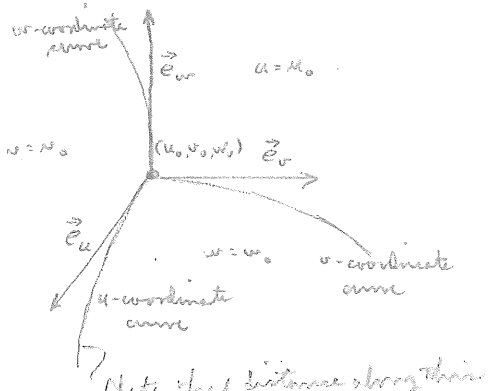 w-coordinate
curve
e⃗_w
u = u₀
v = v₀
(u₀, v₀, w₀)
e⃗_v
e⃗_u
w = w₀
v-coordinate
curve
u-coordinate
curve
Note that distance along this